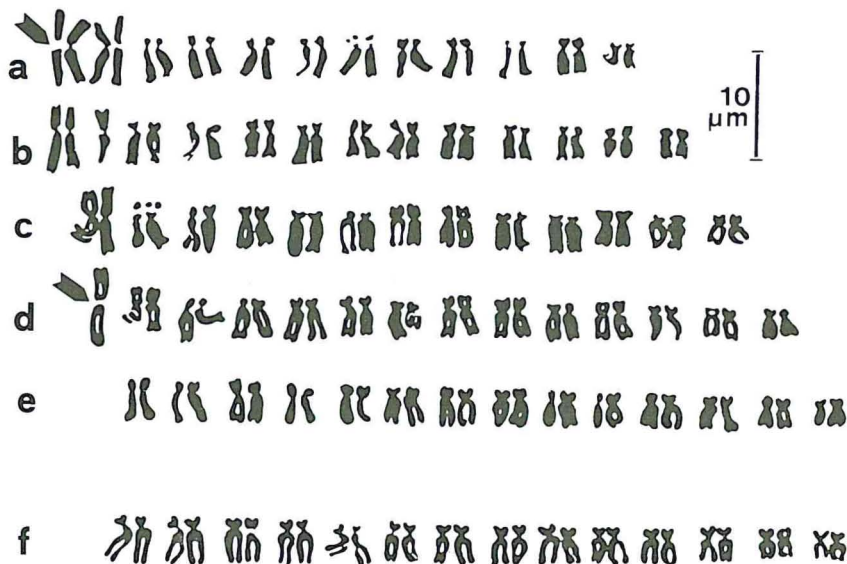 a
10
µm
b
c
d
e
f